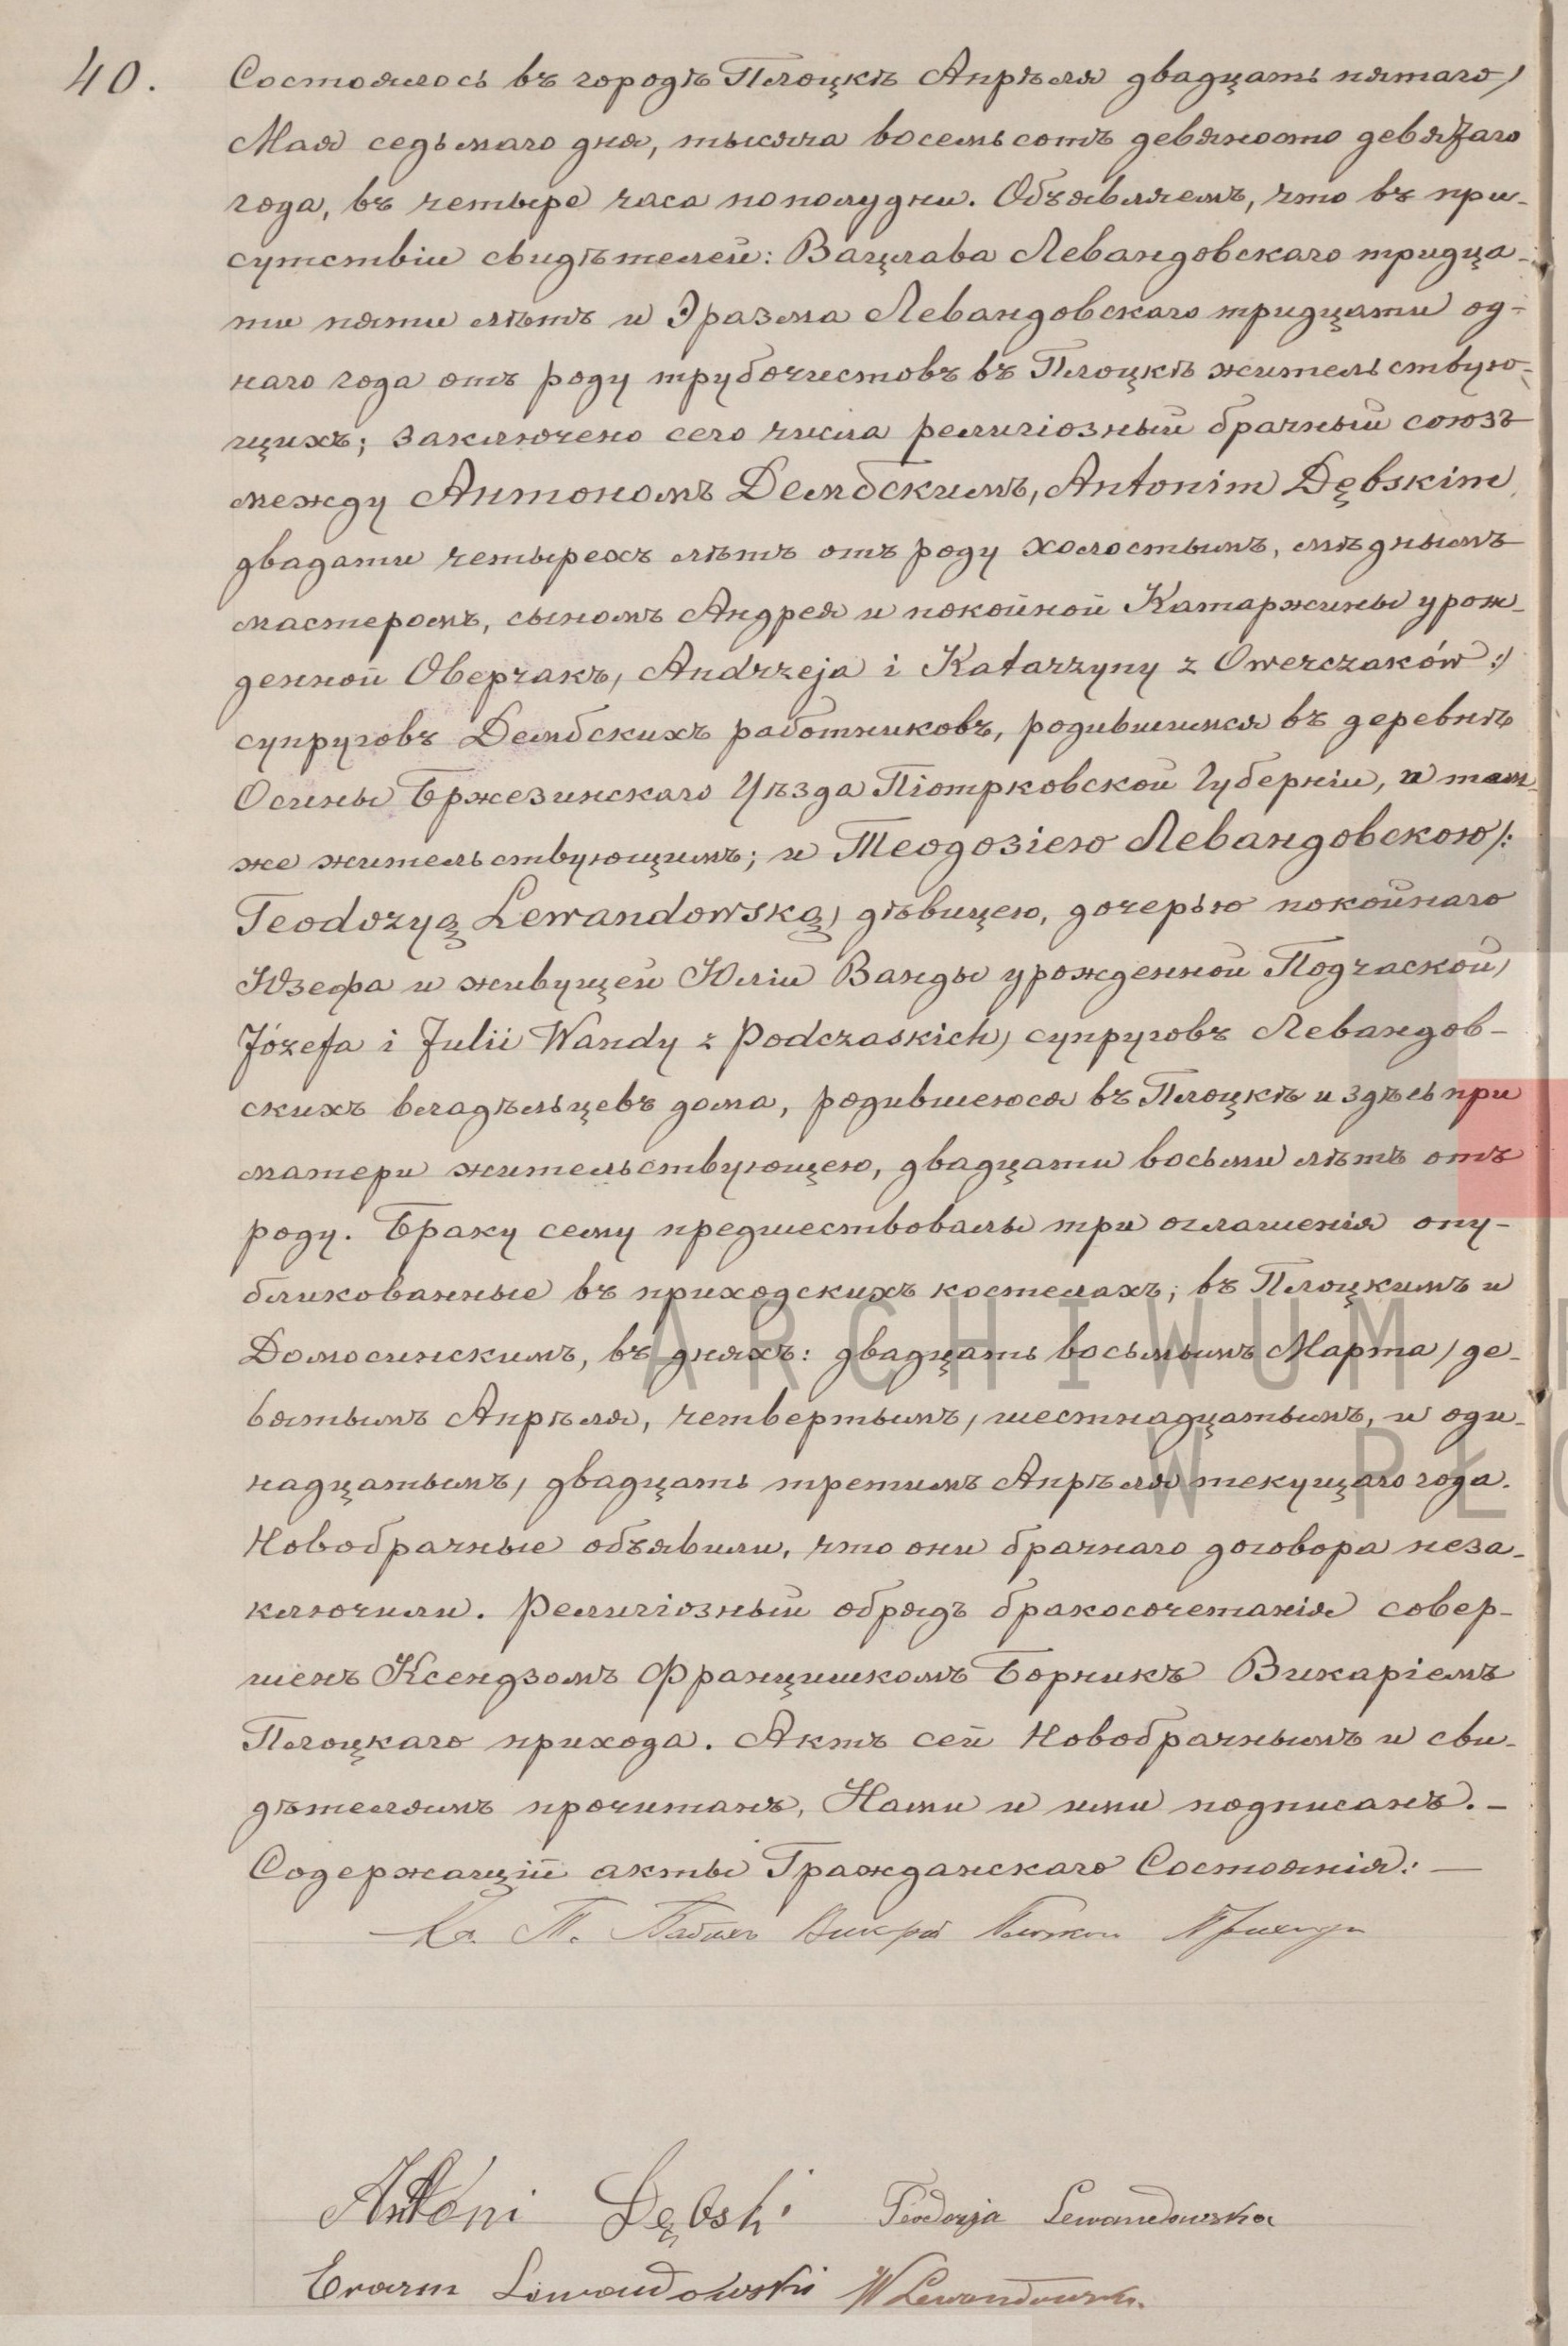 40.
Состоялось въ городѣ Плоцкѣ Апрѣля двадцать пятаго/
Мая седьмаго дня, тысяча восемьсотъ девяносто девятаго
года, въ четыре часа пополудни. Объявляемъ, что въ при-
сутствіи свидѣтелей: Вацлава Левандовскаго тридца-
ти пяти лѣтъ и Эразма Левандовскаго тридцати од-
наго года отъ роду трубочистовъ въ Плоцкѣ жительствую-
щихъ; заключено сего числа религіозный брачный союзъ
между Антономъ Дембскимъ, Antonim Dębskim,
двадати четырехъ лѣтъ отъ роду холостымъ, мѣднымъ
мастеромъ, сыномъ Андрея и покойной Катаржины урож-
денной Оверчакъ, Andrzeja i Katarzyny z Owerczaków :/
супруговъ Дембскихъ работниковъ, родившимся въ деревнѣ
Осины Бржезинскаго Уѣзда Піотрковской Губерніи, и там-
же жительствующимъ; и Теодозіею Левандовскою /:
Teodozyą Lewandowską) дѣвицею, дочерью покойнаго
Юзефа и живущей Юліи Ванды урожденной Подчаской,
Józefa i Julii Wandy z Podczaskich) супруговъ Левандов-
скихъ владѣльцевъ дома, родившеюся въ Плоцкѣ и здѣсь при
матери жительствующею, двадцати восьми лѣтъ отъ
роду. Браку сему предшествовалы три оглашенія опу-
бликованные въ приходскихъ костелахъ; въ Плоцкимъ и
Домосинскимъ, въ дняхъ: двадцать восьмымъ Марта / де-
вятымъ Апрѣля, четвертымъ / шестнадцатымъ, и оди-
надцатымъ / двадцать третимъ Апрѣля текущаго года.
Новобрачные объявили, что они брачнаго договора неза-
ключили. Религіозный обрядъ бракосочетанія совер-
шенъ Ксендзомъ Францишкомъ Борникъ Викаріемъ
Плоцкаго прихода. Актъ сей Новобрачнымъ и сви-
дѣтелямъ прочитанъ, Нами и ими подписанъ. -
Содержащій акты Гражданскаго Состоянія: -
Кс. П.
Antoni Dębski Teodozja Lewandowska
Erazm Lewandowski W Lewandowski
ARCHIWUM
W PŁO